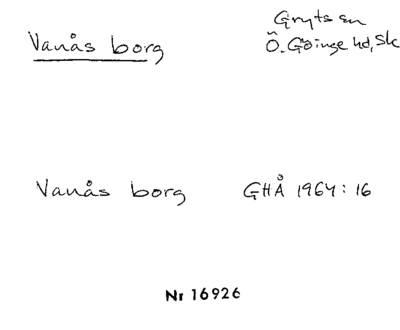 Vanås borg
Gryts sn
Ö. Göinge hd, Sk
Vanås borg GHÅ 1964:16
Nr 16926